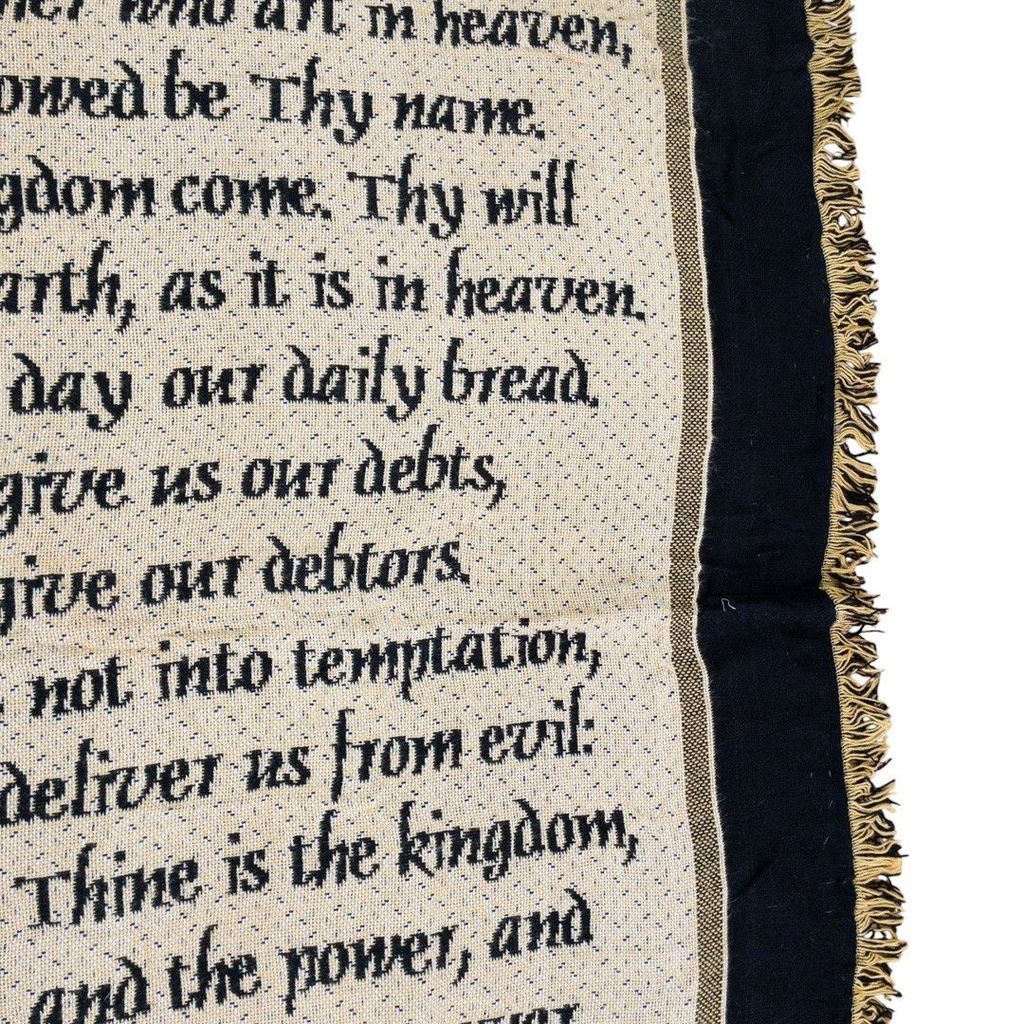 who art in heaven,
owed be Thy name.
gdom come. Thy will
arth, as it is in heaven.
day our daily bread.
give us our debts,
give our debtors.
not into temptation,
deliver us from evil:
Thine is the kingdom,
and the power, and